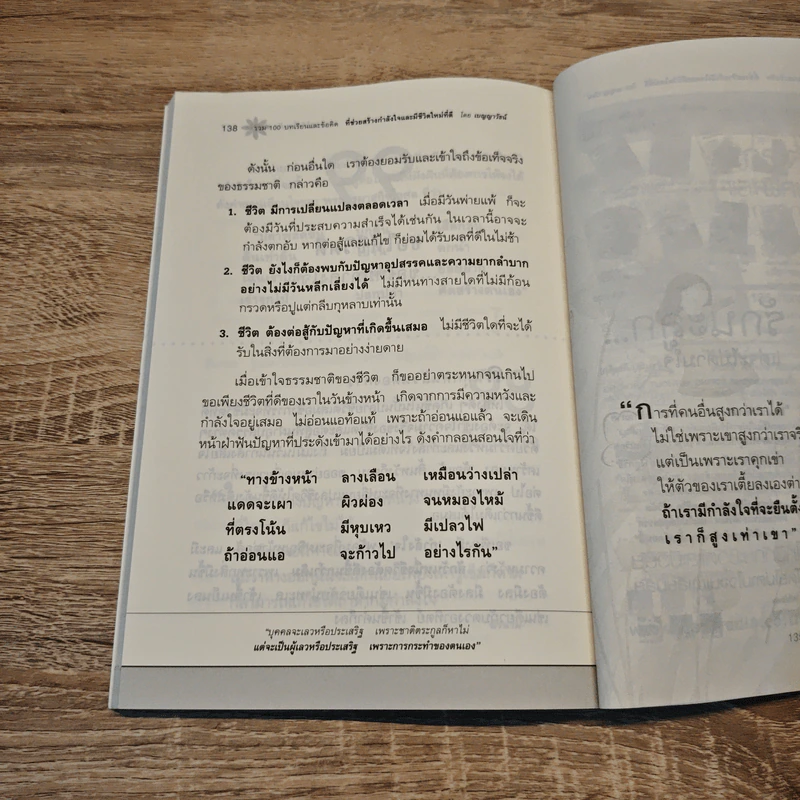 138 รวม 100 บทเรียนและข้อคิด ที่ช่วยสร้างกำลังใจและมีชีวิตใหม่ที่ดี โดย เบญญาวัธน์
ดังนั้น ก่อนอื่นใด เราต้องยอมรับและเข้าใจถึงข้อเท็จจริง
ของธรรมชาติ กล่าวคือ
1. ชีวิต มีการเปลี่ยนแปลงตลอดเวลา เมื่อมีวันพ่ายแพ้ ก็จะ
ต้องมีวันที่ประสบความสำเร็จได้เช่นกัน ในเวลานี้อาจจะ
กำลังตกอับ หากต่อสู้และแก้ไข ก็ย่อมได้รับผลที่ดีในไม่ช้า
2. ชีวิต ยังไงก็ต้องพบกับปัญหาอุปสรรคและความยากลำบาก
อย่างไม่มีวันหลีกเลี่ยงได้ ไม่มีหนทางสายใดที่ไม่มีก้อน
กรวดหรือปูแต่กลีบกุหลาบเท่านั้น
3. ชีวิต ต้องต่อสู้กับปัญหาที่เกิดขึ้นเสมอ ไม่มีชีวิตใดที่จะได้
รับในสิ่งที่ต้องการมาอย่างง่ายดาย
เมื่อเข้าใจธรรมชาติของชีวิต ก็ขออย่าตระหนกจนเกินไป
ขอเพียงชีวิตที่ดีของเราในวันข้างหน้า เกิดจากการมีความหวังและ
กำลังใจอยู่เสมอ ไม่อ่อนแอท้อแท้ เพราะถ้าอ่อนแอแล้ว จะเดิน
หน้าฝ่าฟันปัญหาที่ประดังเข้ามาได้อย่างไร ดังคำกลอนสอนใจที่ว่า
“ทางข้างหน้า ลางเลือน เหมือนว่างเปล่า
แดดจะเผา ผิวผ่อง จนหมองไหม้
ที่ตรงโน้น มีหุบเหว มีเปลวไฟ
ถ้าอ่อนแอ จะก้าวไป อย่างไรกัน”
“บุคคลจะเลวหรือประเสริฐ เพราะชาติตระกูลก็หาไม่
แต่จะเป็นผู้เลวหรือประเสริฐ เพราะการกระทำของตนเอง”
“การที่คนอื่นสูงกว่าเราได้
ไม่ใช่เพราะเขาสูงกว่าเราจริ
แต่เป็นเพราะเราคุกเข่า
ให้ตัวของเราเตี้ยลงเองต่า
ถ้าเรามีกำลังใจที่จะยืนตั้ง
เราก็สูงเท่าเขา”